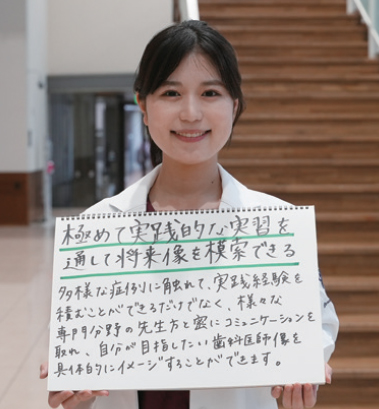 極めて実践的な実習を
通して将来像を模索できる
多様な症例に触れて、実践経験を
積むことができるだけでなく、様々な
専門分野の先生方と密にコミュニケーションを
取れ、自分が目指したい歯科医師像を
具体的にイメージすることができます。